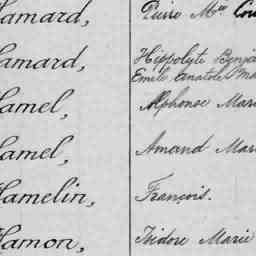 Hamard, Pierre M^ie
Hamard, Hippolyte Benja
Emile Anatole Ma
Hamel, Alphonse Mari
Hamel, Amand Mari
Hamelin, François.
Hamon, Isidore Marie